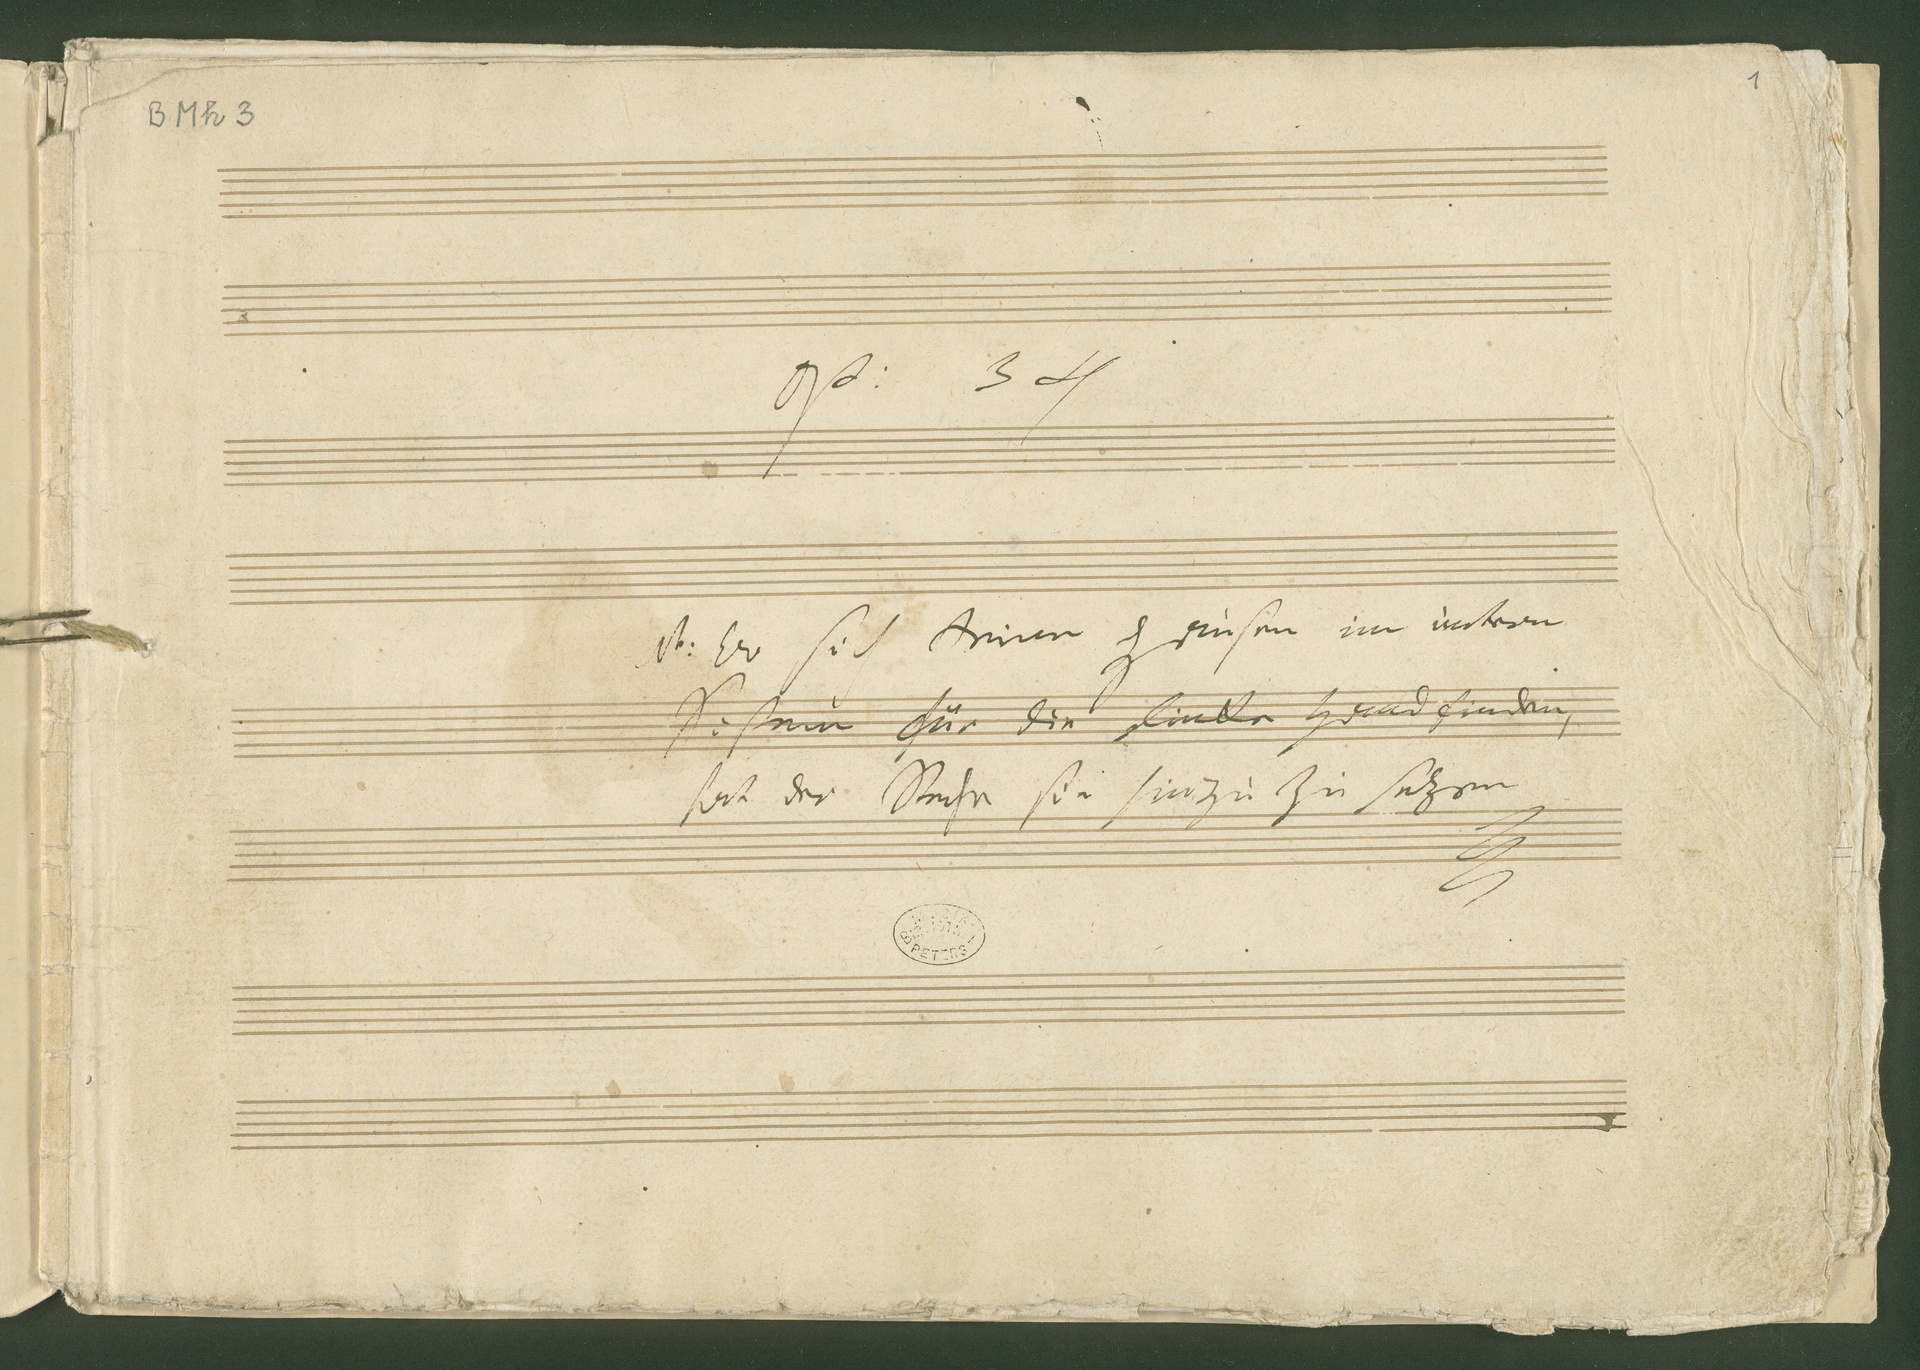 BMh 3
1
op: 34
Nb: wo sich keine pausen im untern
Sistem für die linke Hand finden,
hat der Stecher sie hinzu zu setzen
PETERS